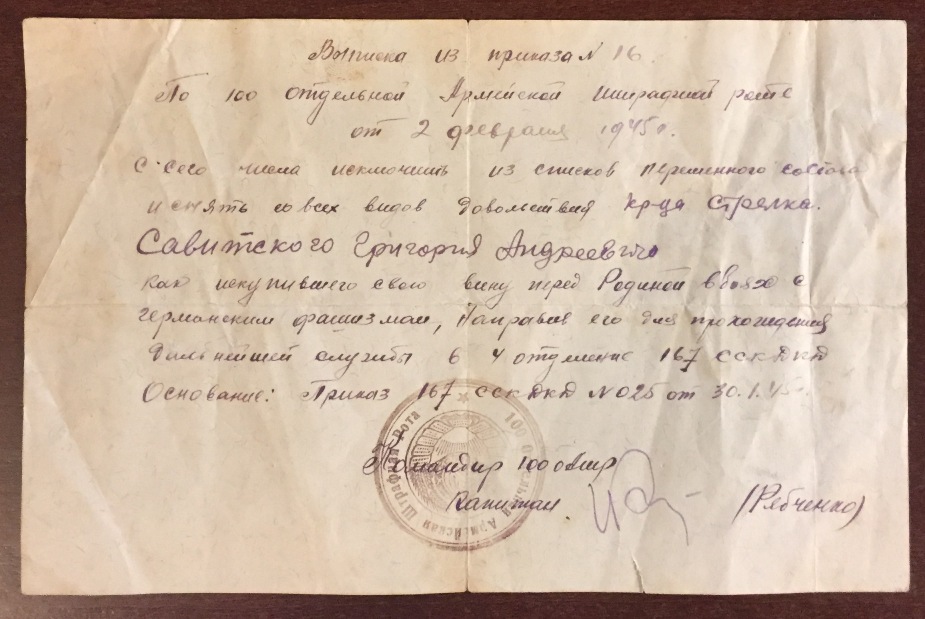 Выписка из приказа N 16.
По 100 отдельной Армейской штрафной роте
от 2 февраля 1945 г.
С сего числа исключить из списков переменного состава
и снять со всех видов довольствия кр-ца стрелка.
Савитского Григория Андреевича
как искупившего свою вину перед Родиной в боях с
германским фашизмом, Направив его для прохождения
дальнейшей службы в 4 отделение 167 сскдкд
Основание: Приказ 167 сскдкд N 025 от 30.1.45г.
Командир 100 оашр
Капитан (Рябченко)
100 Отдельная Армейская Штрафная Рота